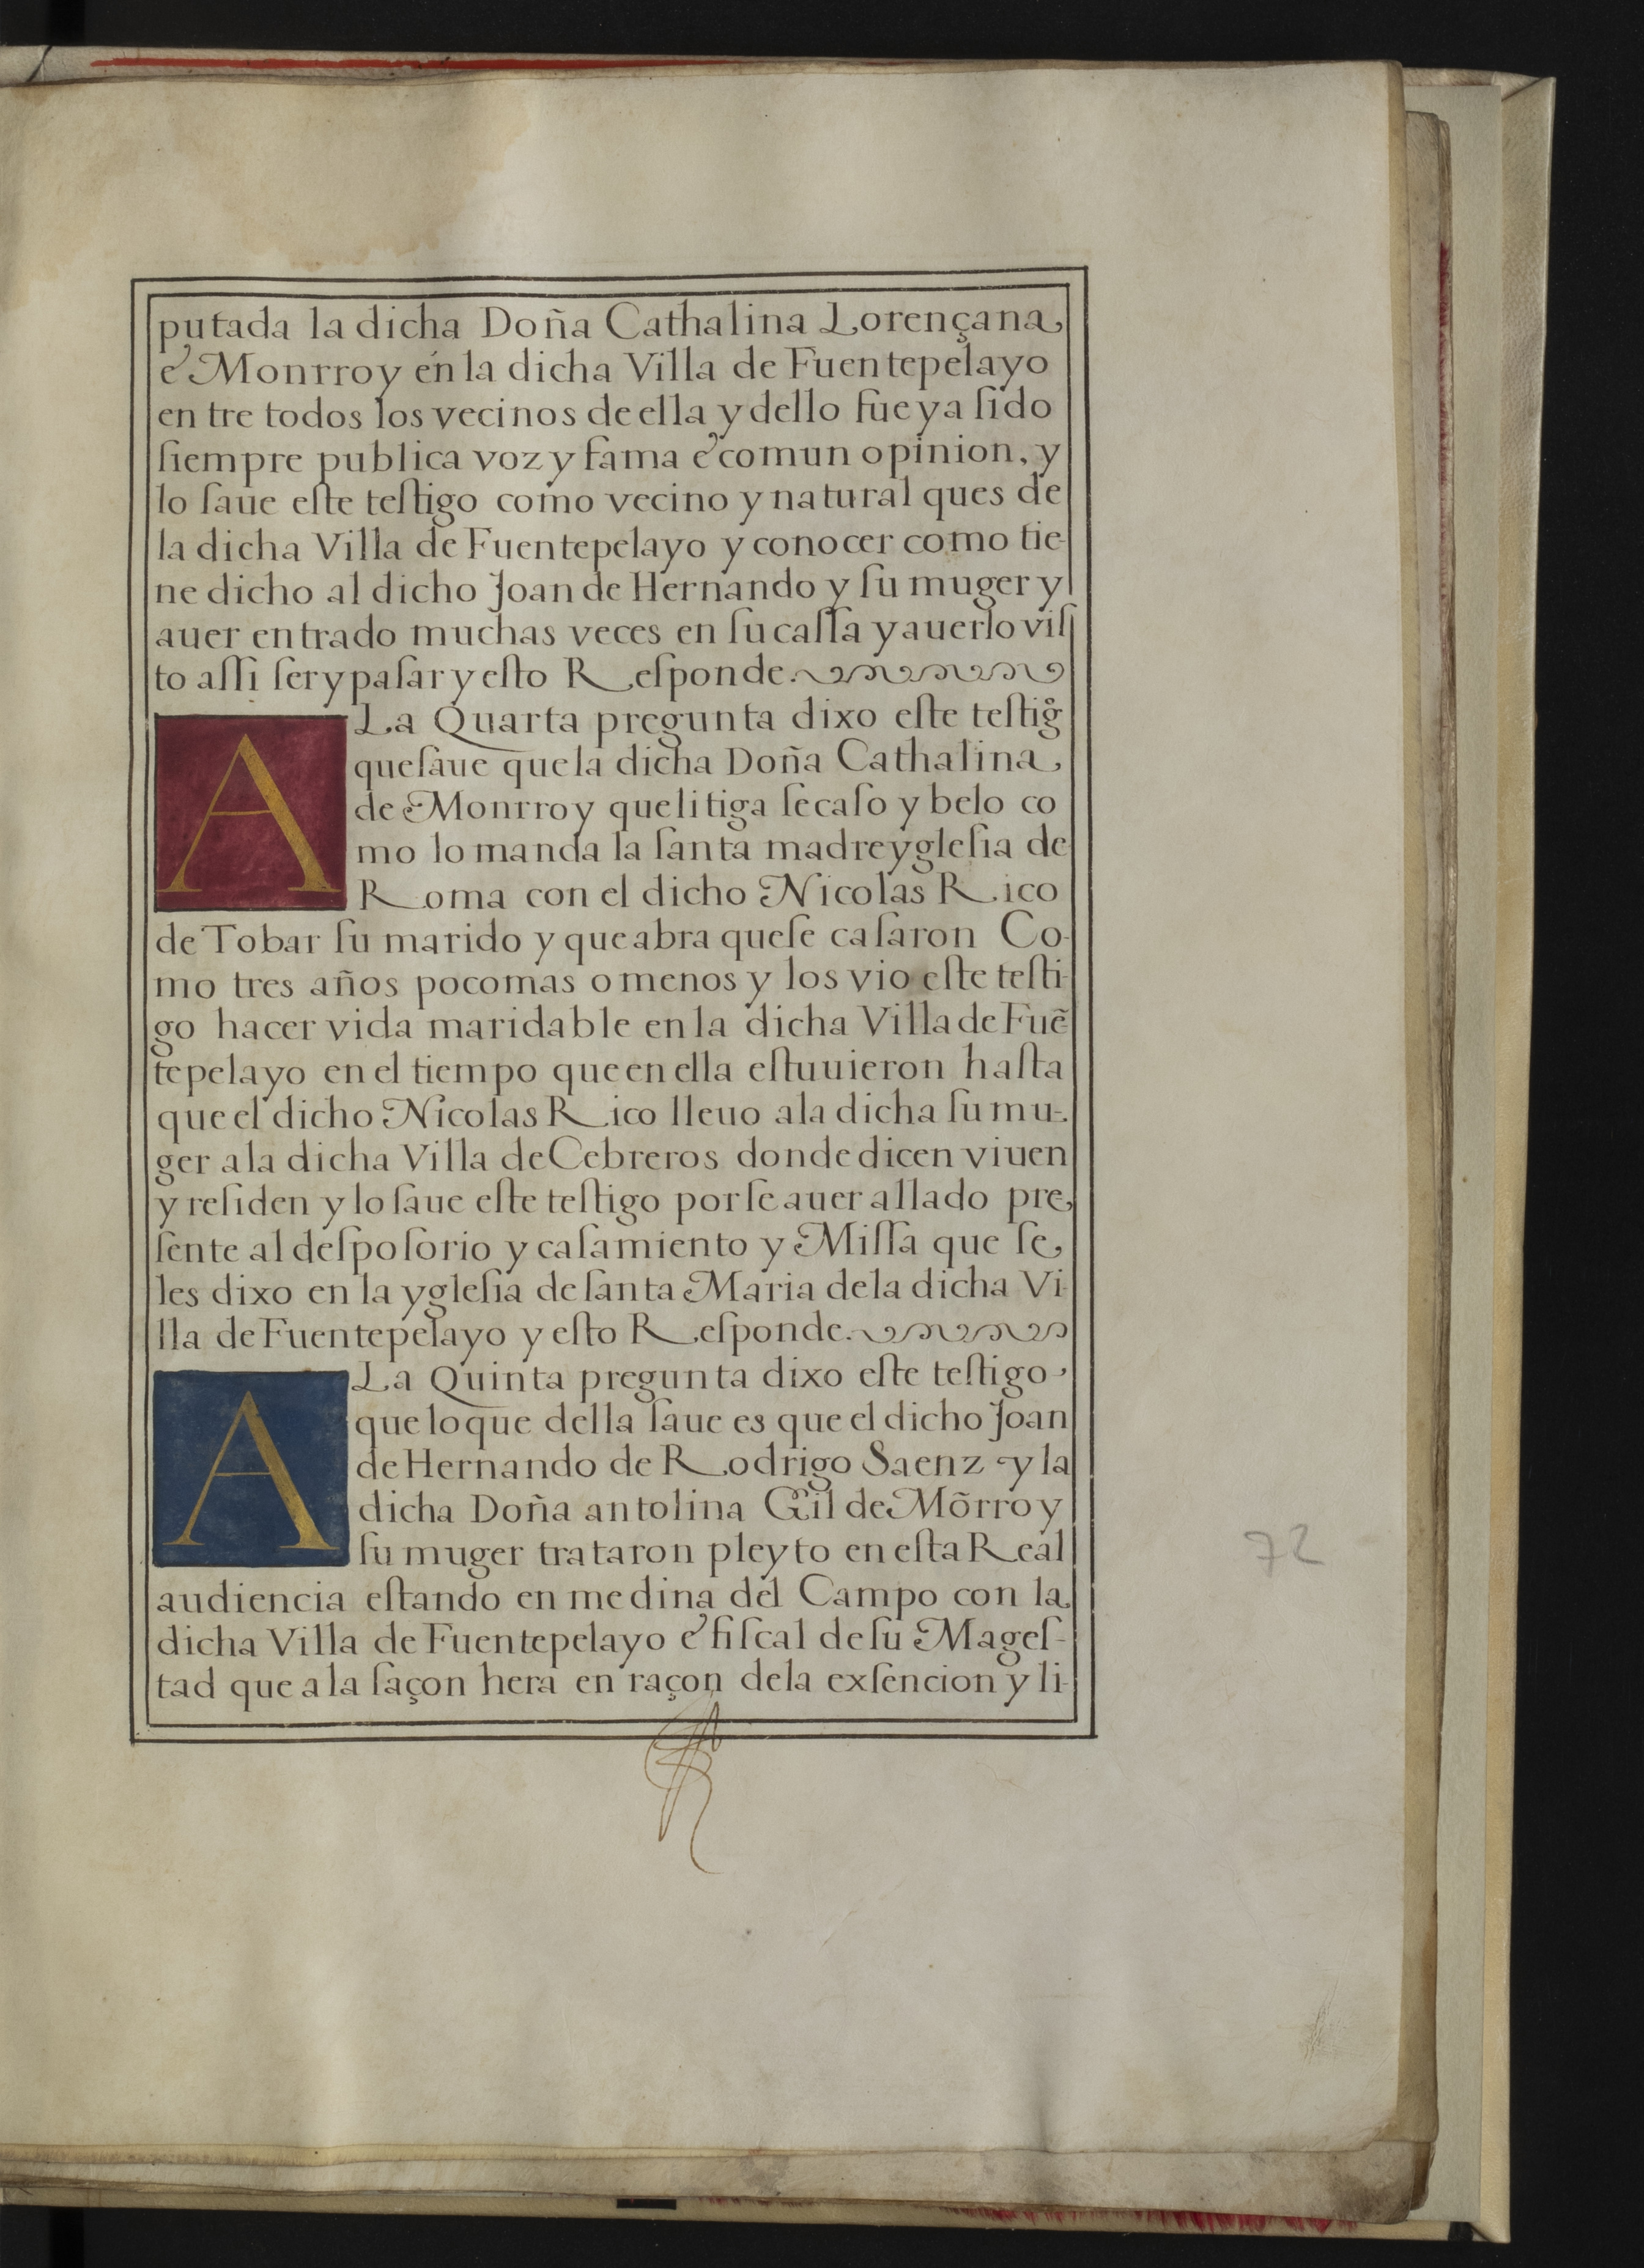 putada la dicha Doña Cathalina Lorençana
é Monrroy én la dicha Villa de Fuentepelayo
entre todos los vecinos de ella y dello fue ya ſido
ſiempre publica voz y fama é comun opinion, y
lo ſaue eſte teſtigo como vecino y natural ques de
la dicha Villa de Fuentepelayo y conocer como tie-
ne dicho al dicho Joan de Hernando y ſu muger y
auer entrado muchas veces en ſu caſſa y auerlo viſ
to aſſi ſer y paſar y eſto Reſponde.
A La Quarta pregunta dixo eſte teſtigº
que ſaue que la dicha Doña Cathalina
de Monrroy que litiga ſe caſo y belo co
mo lo manda la ſanta madre ygleſia de
Roma con el dicho Nicolas Rico
de Tobar ſu marido y que abra queſe caſaron Co-
mo tres años poco mas o menos y los vio eſte teſti-
go hacer vida maridable en la dicha Villa de Fuẽ
tepelayo en el tiempo que en ella eſtuuieron haſta
que el dicho Nicolas Rico lleuo a la dicha ſu mu-
ger a la dicha Villa de Cebreros donde dicen viuen
y reſiden y lo ſaue eſte teſtigo por ſe auer allado pre
ſente al deſpoſorio y caſamiento y Miſſa que ſe
les dixo en la ygleſia de ſanta Maria de la dicha Vi-
lla de Fuentepelayo y eſto Reſponde.
A La Quinta pregunta dixo eſte teſtigo,
que lo que della ſaue es que el dicho Joan
de Hernando de Rodrigo Saenz y la
dicha Doña antolina Gil de Mõrroy
ſu muger trataron pleyto en eſta Real
audiencia eſtando en medina del Campo con la
dicha Villa de Fuentepelayo é fiſcal de ſu Mageſ-
tad que a la ſaçon hera en raçon de la exſencion y li-
72